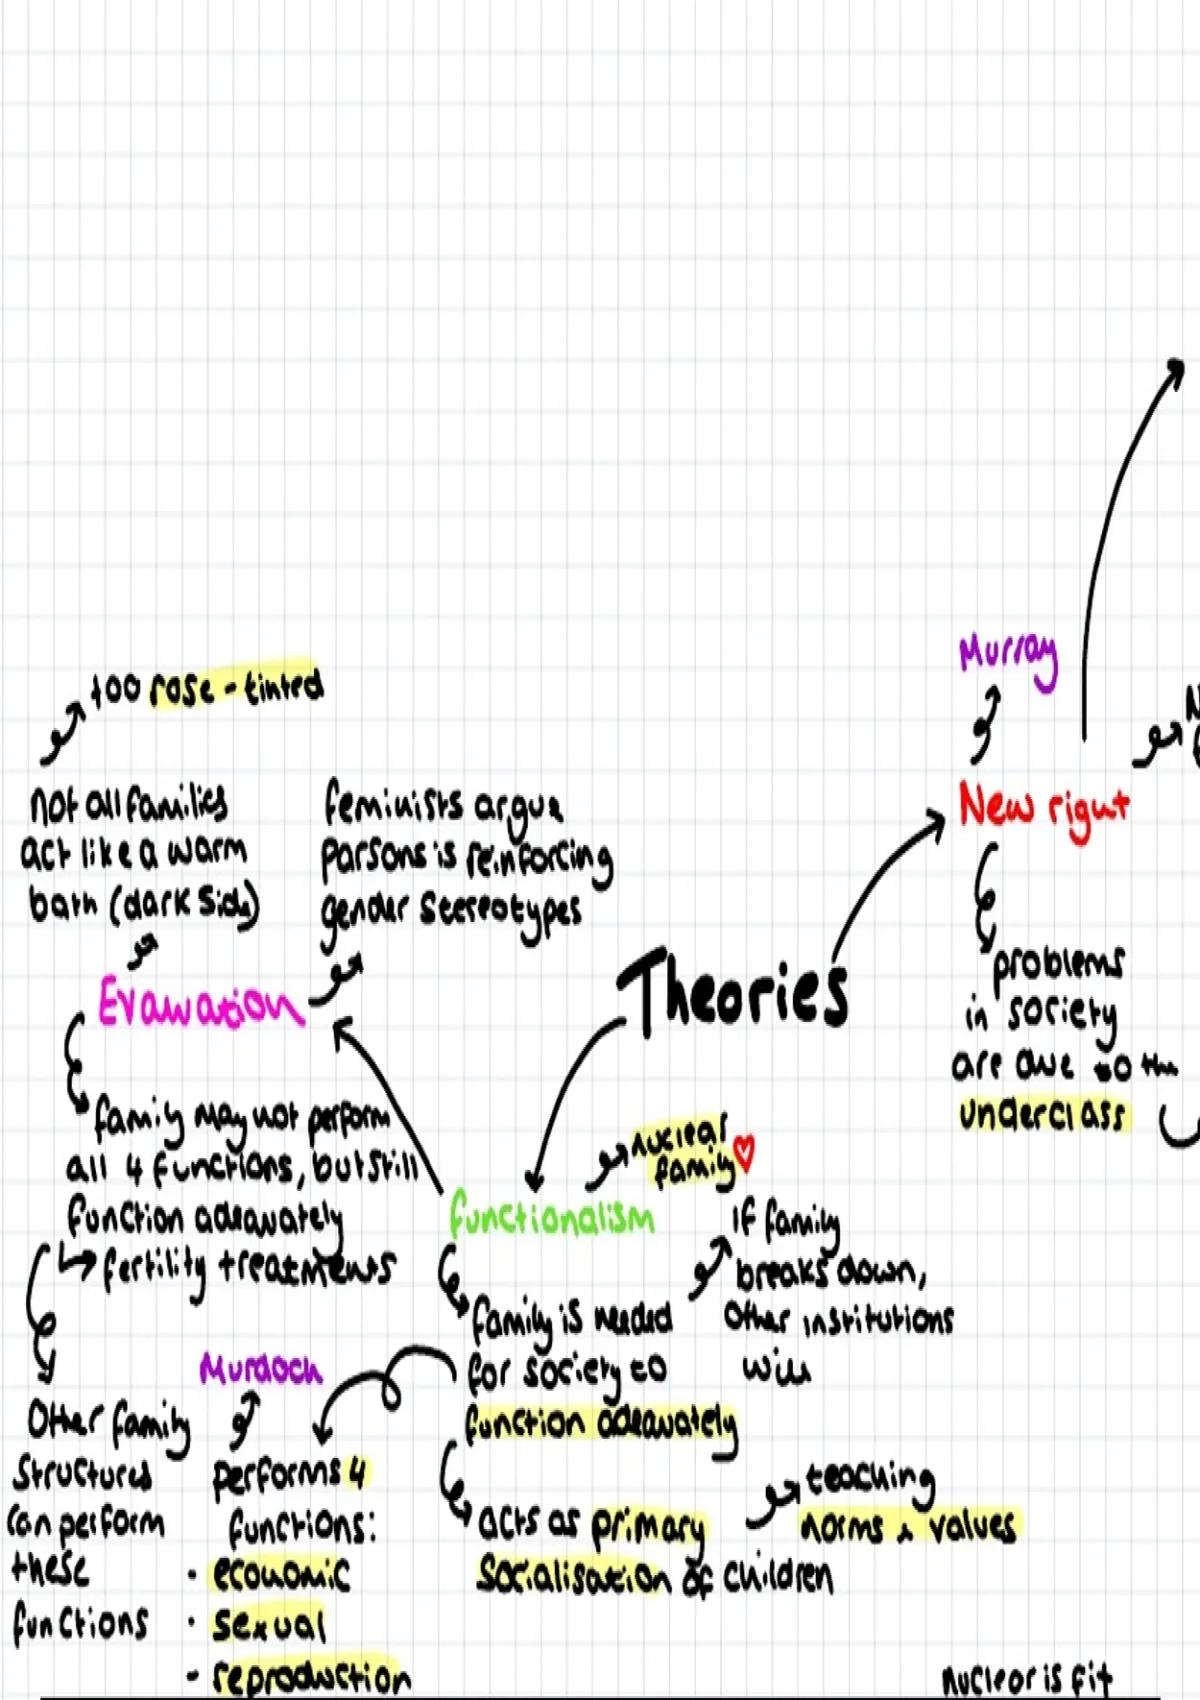 too rose-tinted
not all families
act like a warm
bath (dark side)
feminists argue
parsons is reinforcing
gender stereotypes
Evaluation
family may not perform
all 4 functions, but still
function adequately
fertility treatments
Other family
structures
can perform
these
functions
Murdoch
performs 4
functions:
· economic
· sexual
- reproduction
Theories
functionalism
nuclear
family
family is needed
for society to
function adequately
if family
breaks down,
other institutions
will
acts as primary
socialisation of children
teaching
norms & values
Murray
New right
problems
in society
are due to the
underclass
nuclear is fit